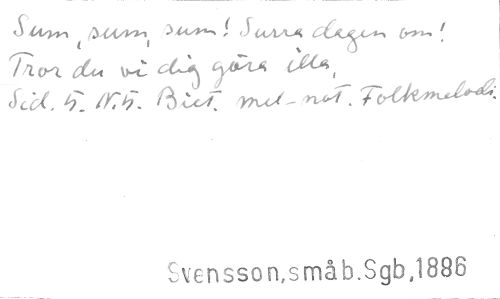 Sum, sum, sum! Surra dagen om!
Tror du vi dig göra illa,
Sid. 5. N.5. Biet. mel-not. Folkmelodi.
Svensson,småb.Sgb,1886